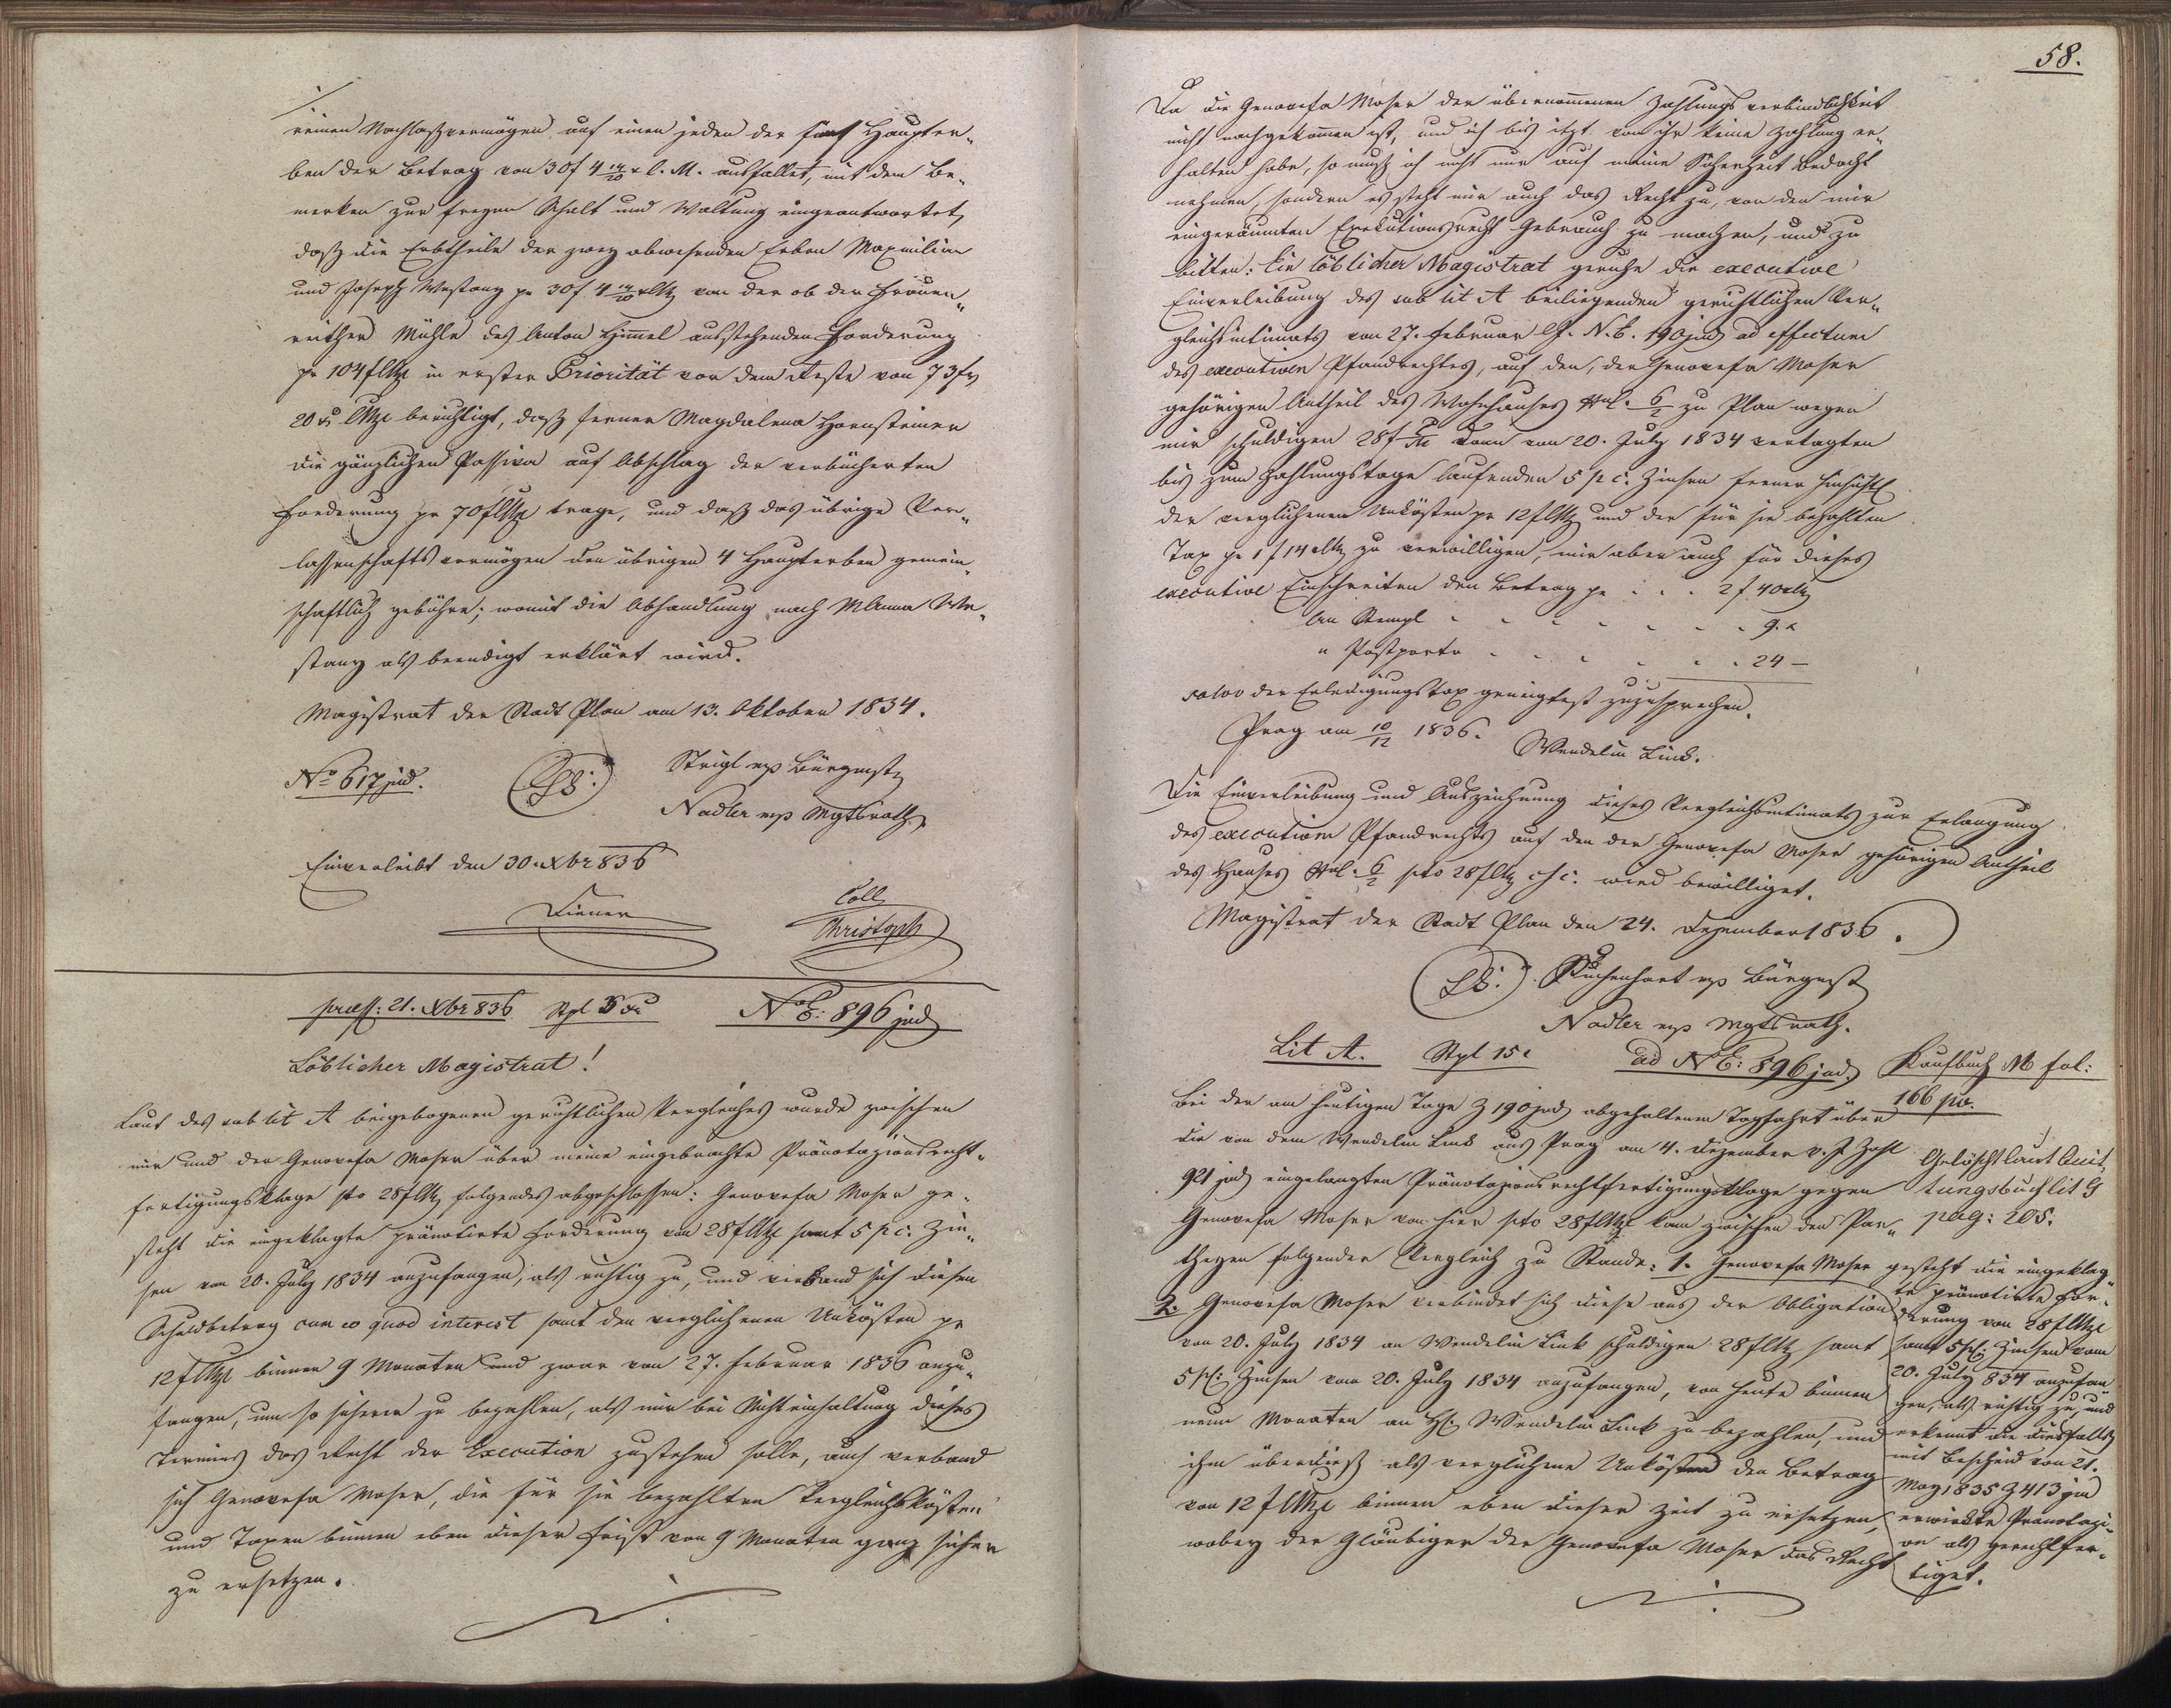 reinen Nachlaßvermögen auf einen jeden der fünf Haupter„
ben der Betrag von 30f 4 14/20 x C. M. ausfallet, mit dem Be„
merken zur freyen Schalt und Waltung eingeantwortet,
daß die Erbtheile der zwey abwesenden Erben Maximilian
und Joseph Westang pr 30f 4 14/20 xCMz von der ob der Frauen„
reither Mühle des Anton Himmel ausstehenden Forderung
pr 104fCMz in erster Priorität vor dem Reste von 73f
20 x CMz berichtigt, daß ferner Magdalena Hornsteiner
die gänzlichen Passiva auf Abschlag der verbücherten
Forderung pr 70fCMz trage, und daß das übrige Ver„
lassenschaftsvermögen den übrigen 4 Haupterben gemein„
schaftlich gebühre; womit die Abhandlung nach MAnna We„
stang als beendigt erklärt wird.
Magistrat der Stadt Plan am 13. Oktober 1834.
No 617 jud. (LS:) Strigl mp Bürgmstr
Nadler mp Mgtsrath
Einverleibt den 30. Xbr 836
Diener Coll
Christoph
praes: 21. Xbr 836 Stpl 6 x NoE: 896 jud
Löblicher Magistrat!
Laut des sub lit A beigebogenen gerichtlichen Vergleiches wurde zwischen
mir und der Genovefa Moser über meine eingebrachte Pränotazionsrecht„
fertigungsklage pto 28fCMz folgendes abgeschlossen: Genovefa Moser ge„
steht die eingeklagte pränotirte Forderung von 28fCMz samt 5 p c. Zin„
sen von 20. July 1834 anzufangen, als richtig zu, und verband sich diesen
Schuldbetrag cum eo quod interest samt den verglichenen Unkösten pr
12fCMz binnen 9 Monaten und zwar von 27. Februar 1836 anzu„
fangen, um so sicherer zu bezahlen, als mir bei Nichteinhaltung dieses
Termins das Recht der Execution zustehen solle, auch verband
sich Genovefa Moser, die für sie bezahlten Vergleichskösten
und Taxen binnen eben dieser Frist von 9 Monaten ganz sicher
zu ersetzen.
58.
Da die Genovefa Moser der übernommenen Zahlungsverbindlichkeit
nicht nachgekommen ist, und ich bis itzt von ihr keine Zahlung er„
halten habe, so muß ich nicht nur auf meine Sicherheit Bedacht
nehmen, sondern es steht mir auch das Recht zu, von den mir
eingeräumten Exekutionsrecht Gebrauch zu machen, und zu
bitten: Ein löblicher Magistrat geruhe die executive
Einverleibung des sub lit A beiliegenden gerichtlichen Ver„
gleichsintimats von 27. Februar N. E. 190 jud ad effectum
des executiven Pfandrechtes, auf den, der Genovefa Moser
gehörigen Antheil des Wohnhauses Nr. 6/2 zu Plan wegen
mir schuldigen 28f dann von 20. July 1834 vertagten
bis zum Zahlungstage laufenden 5 p c. Zinsen ferner hinsichtl
der verglichenen Unkösten pr 12fCMz und der für sie bezahlten
Tax pr 1f 14xCMz zu verwilligen, mir aber auch für dieses
executive Einschreiten den Betrag pr . . . 2f 40xCMz
An Stempl . . . . . . . 9. x
" Postporto . . . . . . 24 —
salvo der Erledigungstax geneigtest zuzusprechen.
Prag am 10/12 1836. Wendelin Link.
Die Einverleibung und Auszeichnung dieses Vergleichsintimats zur Erlangung
des executiven Pfandrechts auf den der Genovefa Moser gehörigen Antheil
des Hauses Nr. 6/2 pto 28fCMz c s c. wird bewilliget.
Magistrat der Stadt Plan den 24. Dezember 1836.
(LS:) Kuchenhart mp Bürgmst
Nadler mp Mgtsrath.
Lit A. Stpl 15x ad NoE: 896 jud. Kaufbuch M fol:
166 p.v.
Bei der am heutigen Tage Z 190 jud abgehaltenen Tagfahrt über
die von dem Wendelin Link aus Prag am 4. Dezember v. J. Zahl
921 jud eingelangten Pränotazionsrechtfertigungsklage gegen
Genovefa Moser von hier pto 28fCMz kam zwischen den Par„
theyen folgender Vergleich zu Stande: 1. Genovefa Moser gesteht die eingeklag„
te pränotirte For„
derung von 28fCMz
samt 5 pC: Zinsen vom
20. July 834 anzufan
gen, als richtig zu, und
erkennt die diesfalls
mit Bescheid von 21.
May 1835 Z 413 jud
erwirkte Pränotazi„
on als gerechtfer„
tiget.
2. Genovefa Moser verbindet sich diese aus der Obligation
von 20. July 1834 an Wendelin Link schuldigen 28fCMz samt
5 pC: Zinsen vom 20. July 1834 anzufangen, von heute binnen
neun Monaten an H: Wendelin Link zu bezahlen, und
ihm überdieß als verglichene Unkösten den Betrag
von 12fCMz binnen eben dieser Zeit zu ersetzen,
wobey der Gläubiger der Genovefa Moser das Recht
Gelöscht laut Quit„
tungsbuch lit G
pag: 205.